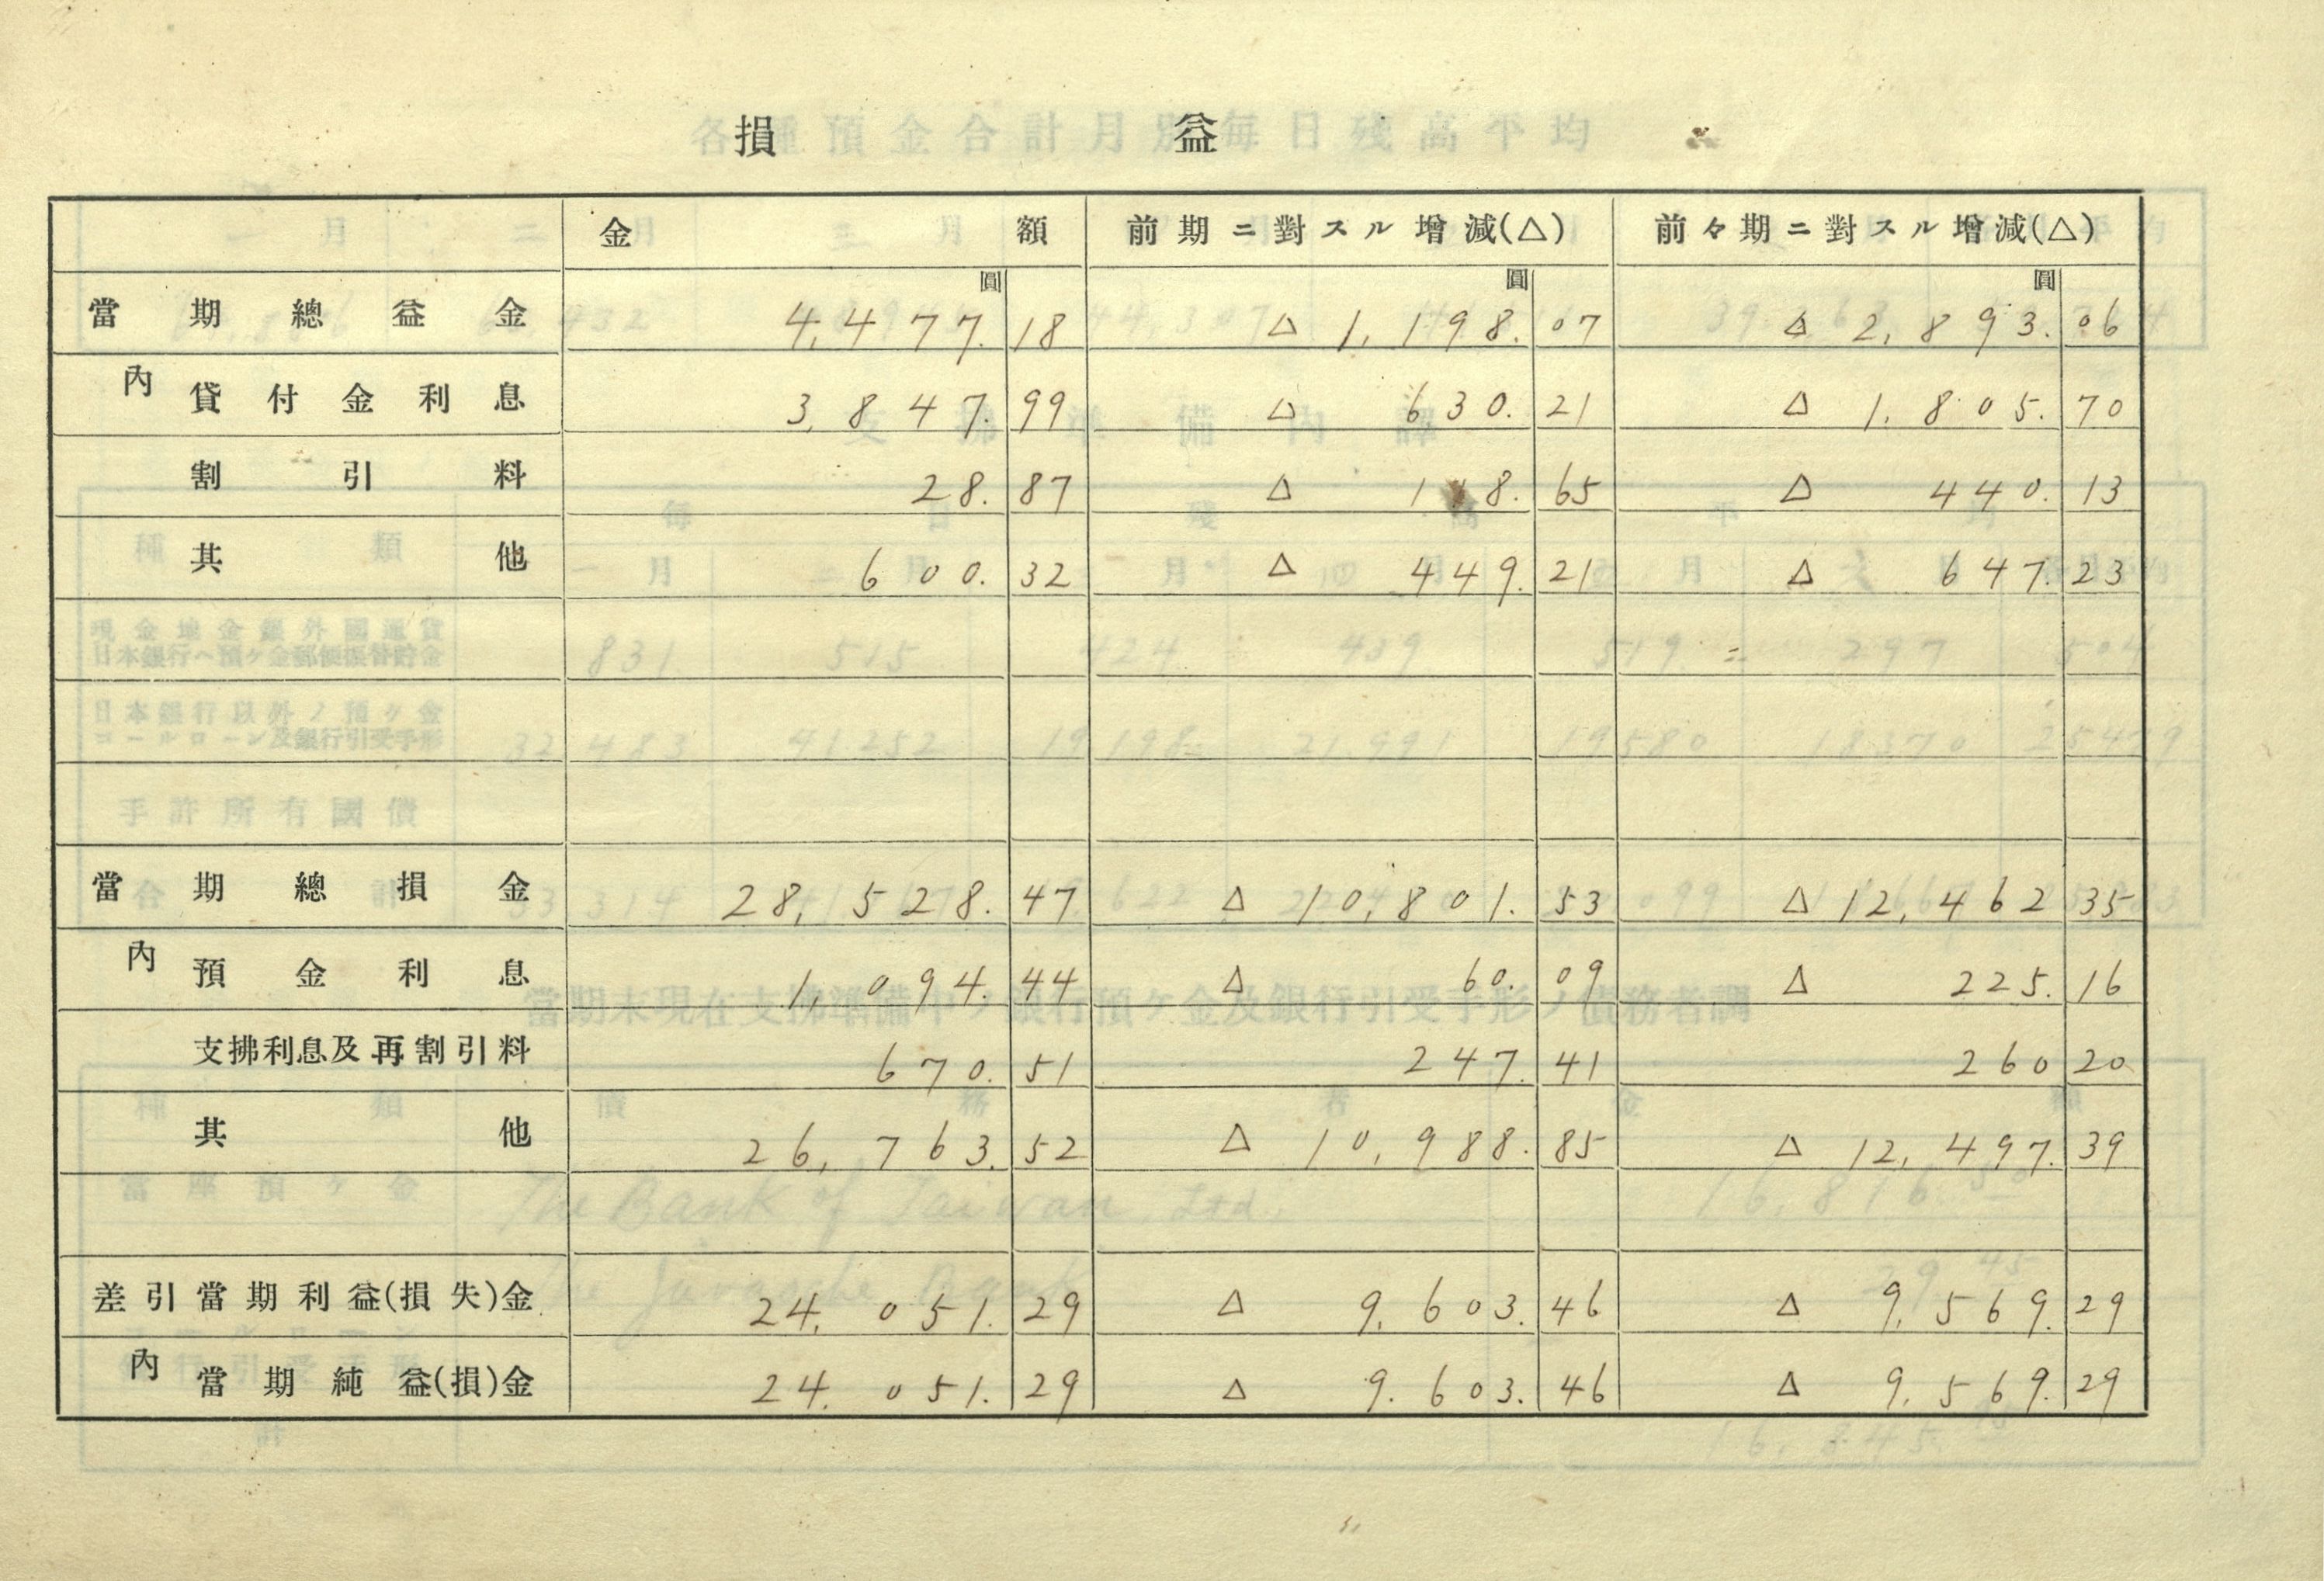 損 益
金 額 前期ニ對スル增減(△) 前々期ニ對スル增減(△)
圓 圓 圓
當期總益金 4,477.18 △ 1,198.07 △ 2,893.06
內 貸付金利息 3,847.99 △ 630.21 △ 1,805.70
割引料 28.87 △ 118.65 △ 440.13
其他 600.32 △ 449.21 △ 647.23
當期總損金 28,528.47 △ 10,801.53 △ 12,462 35
內 預金利息 1,094.44 △ 60.09 △ 225.16
支拂利息及再割引料 670.51 247.41 260 20
其他 26,763.52 △ 10,988.85 △ 12,497.39
差引當期利益(損失)金 24,051.29 △ 9,603.46 △ 9,569.29
內 當期純益(損)金 24,051.29 △ 9,603.46 △ 9,569.29